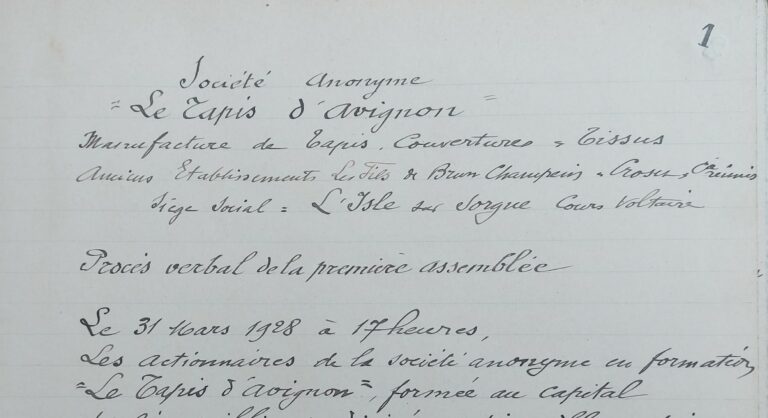 1
Société Anonyme
"Le Tapis d'Avignon"
Manufacture de Tapis. Couvertures = Tissus
Anciens Etablissements Les Fils de Brun Champein = Croset = Cie réunis
Siège Social = L'Isle sur Sorgue Cours Voltaire
Procès verbal de la première assemblée
Le 31 Mars 1928 à 17 heures,
Les actionnaires de la société anonyme en formation,
"Le Tapis d'Avignon", formée au capital